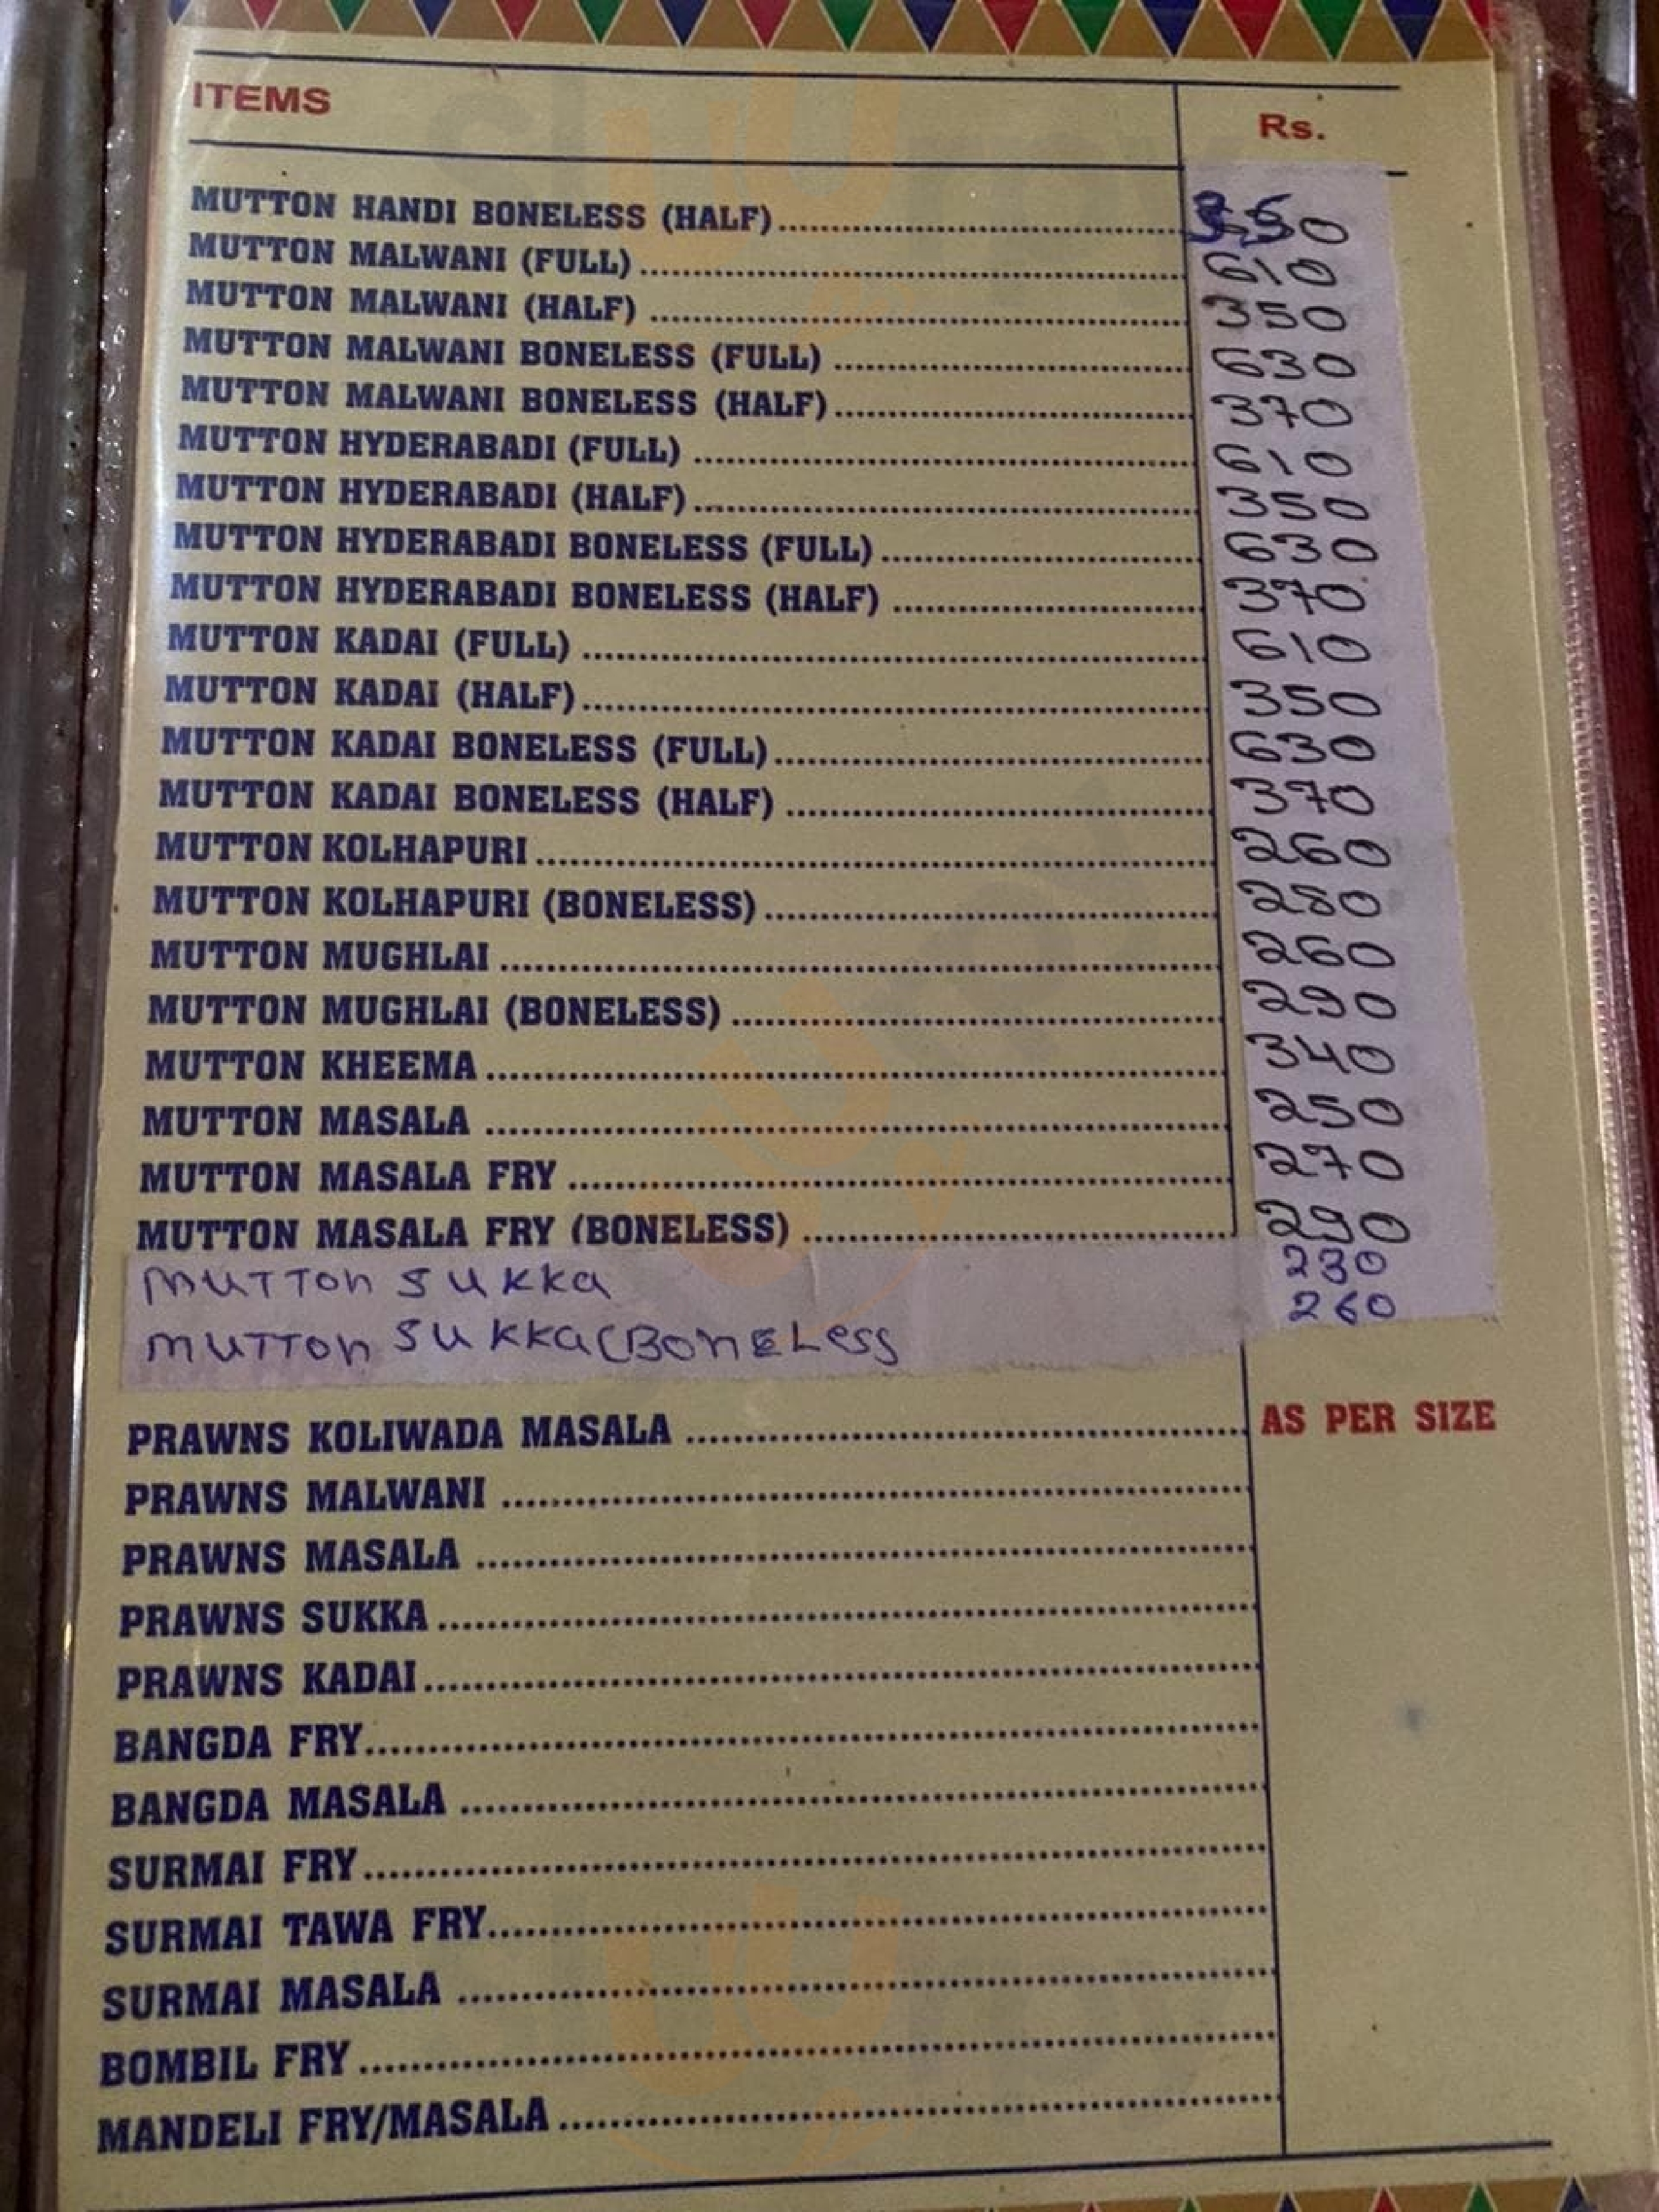 ITEMS Rs.
MUTTON HANDI BONELESS (HALF)
MUTTON MALWANI (FULL) 610
MUTTON MALWANI (HALF) 350
MUTTON MALWANI BONELESS (FULL) 630
MUTTON MALWANI BONELESS (HALF) 370
MUTTON HYDERABADI (FULL) 610
MUTTON HYDERABADI (HALF) 350
MUTTON HYDERABADI BONELESS (FULL) 630
MUTTON HYDERABADI BONELESS (HALF) 370
MUTTON KADAI (FULL) 610
MUTTON KADAI (HALF) 350
MUTTON KADAI BONELESS (FULL) 630
MUTTON KADAI BONELESS (HALF) 370
MUTTON KOLHAPURI 260
MUTTON KOLHAPURI (BONELESS) 280
MUTTON MUGHLAI 260
MUTTON MUGHLAI (BONELESS) 290
MUTTON KHEEMA 340
MUTTON MASALA 250
MUTTON MASALA FRY 270
MUTTON MASALA FRY (BONELESS) 290
MUTTON SUKKA 230
MUTTON SUKKA(BONELESS 260
PRAWNS KOLIWADA MASALA AS PER SIZE
PRAWNS MALWANI
PRAWNS MASALA
PRAWNS SUKKA
PRAWNS KADAI
BANGDA FRY
BANGDA MASALA
SURMAI FRY
SURMAI TAWA FRY
SURMAI MASALA
BOMBIL FRY
MANDELI FRY/MASALA